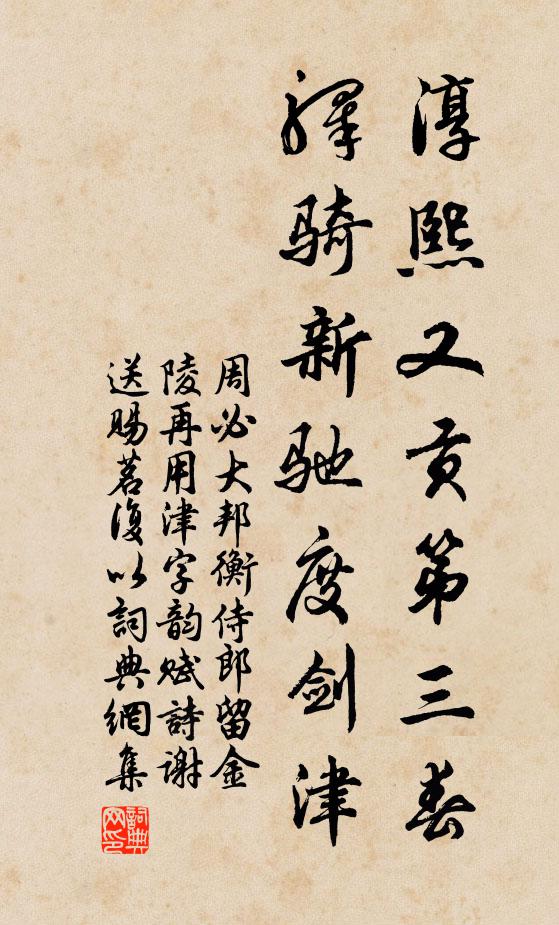 淳熙又贡第三春
驿骑新驰度剑津
周必大邦衡侍郎留金
陵再用津字韵赋詩谢
送赐茗復以詞典網集
詞典
网印